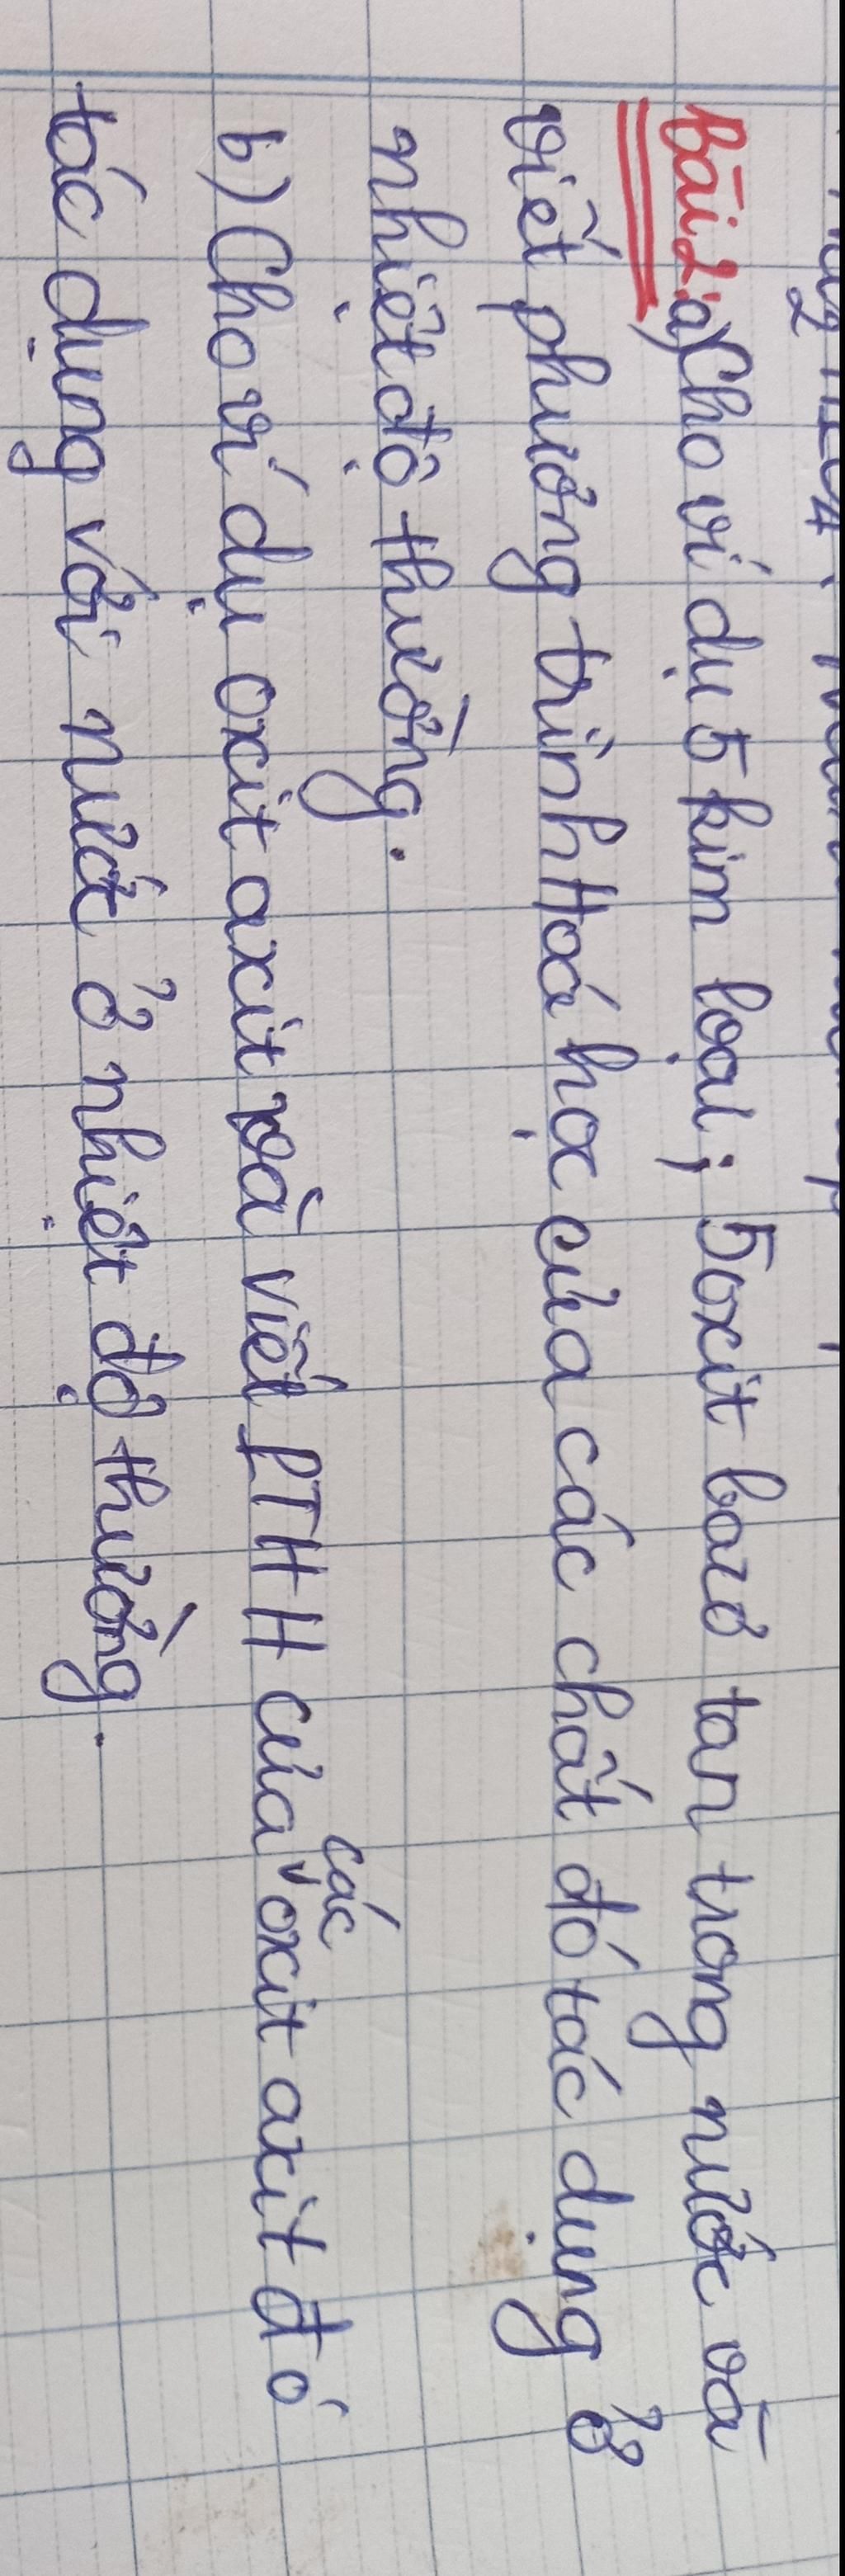 Bài 2: a) Cho ví dụ 5 kim loại; 5 oxit bazơ tan trong nước và
viết phương trình Hoá học của các chất đó tác dụng ở
nhiệt độ thường.
b) Cho ví dụ oxit axit và viết PTHH của các oxit axit đó
tác dụng với nước ở nhiệt độ thường.